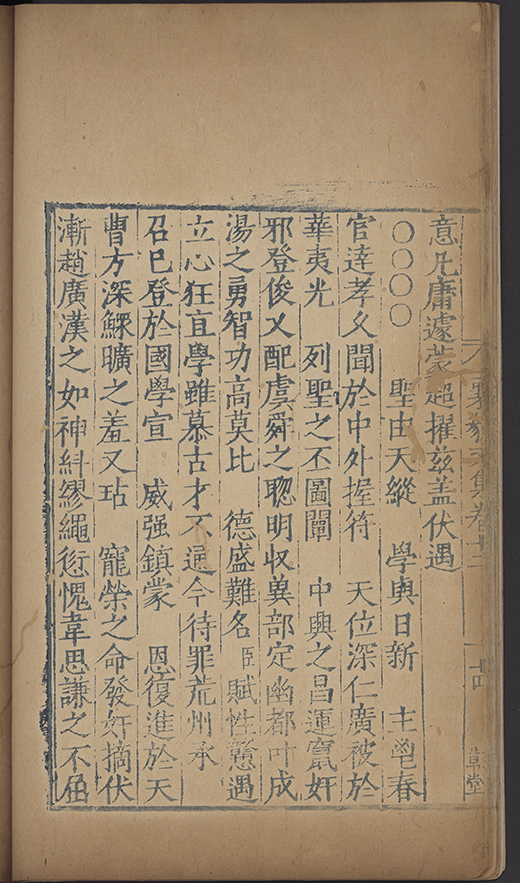 意凡庸遽蒙超擢兹盖伏遇
〇〇〇〇　聖由天縱　學與日新　主鬯春
官達孝乂聞於中外握符　天位深仁廣被於
華夷光　列聖之丕圖闡　中興之昌運竄奸
邪登俊乂配虞舜之聦明収兾部定幽都叶成
湯之勇智功高莫比　德盛難名臣賦性戇遇
立心狂直學雖慕古才不通今待罪荒州承
召已登於國學宣　威强鎮蒙　恩復進於天
曹方深鰥曠之羞又玷　寵榮之命發奸摘伏
漸趙廣漢之如神糾繆繩愆愧韋思謙之不屈
文集卷十二
十四
草堂